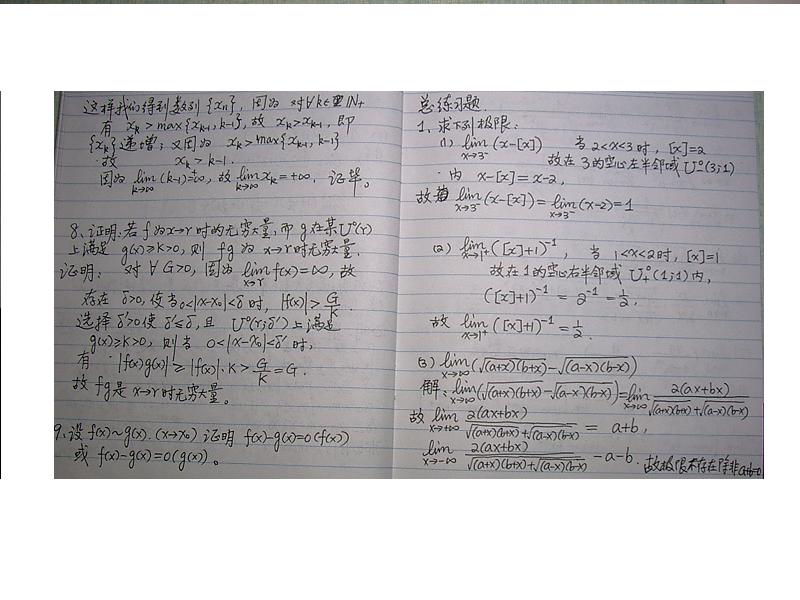 这样我们得到数列{xₙ}, 因为 对∀k∈ℕ₊
有 xₖ>max{xₖ₋₁,k-1}, 故 xₖ>xₖ₋₁, 即
{xₖ}递增; 又因为 xₖ>max{xₖ₋₁,k-1}
故 xₖ>k-1.
因为 lim_{k→∞}(k-1)=+∞, 故 lim_{k→∞}xₖ=+∞, 证毕。
8、证明:若f为x→r时的无穷大量,而g在某U°(r)
上满足 g(x)≥K>0, 则 fg为 x→r时无穷大量.
证明: 对∀G>0, 因为 lim_{x→r}f(x)=∞, 故
存在δ>0, 使当0<|x-x₀|<δ时, |f(x)|>G/K.
选择δ'>0使δ'≤δ, 且 U°(r;δ')上满足
g(x)≥K>0, 则当 0<|x-x₀|<δ'时,
有 |f(x)g(x)|≥|f(x)|·K>G/K·K=G.
故 fg是x→r时无穷大量。
9、设 f(x)~g(x).(x→x₀) 证明 f(x)-g(x)=o(f(x))
或 f(x)-g(x)=o(g(x))。
总练习题
1、求下列极限:
(1) lim_{x→3⁻}(x-[x]) 当2<x<3时, [x]=2
故在3的空心左半邻域U₋°(3;1)
内 x-[x]=x-2,
故 lim_{x→3⁻}(x-[x])=lim_{x→3⁻}(x-2)=1
(2) lim_{x→1⁺}([x]+1)⁻¹, 当 1<x<2时, [x]=1
故在1的空心右半邻域 U₊°(1;1)内,
([x]+1)⁻¹ = 2⁻¹=1/2.
故 lim_{x→1⁺}([x]+1)⁻¹=1/2.
(3) lim_{x→∞}(√(a+x)(b+x)-√(a-x)(b-x))
解: lim_{x→∞}(√(a+x)(b+x)-√(a-x)(b-x))=lim_{x→∞} 2(ax+bx)/(√(a+x)(b+x)+√(a-x)(b-x))
故 lim_{x→+∞} 2(ax+bx)/(√(a+x)(b+x)+√(a-x)(b-x)) = a+b,
lim_{x→-∞} 2(ax+bx)/(√(a+x)(b+x)+√(a-x)(b-x)) -a-b. 故极限不存在除非a+b=0